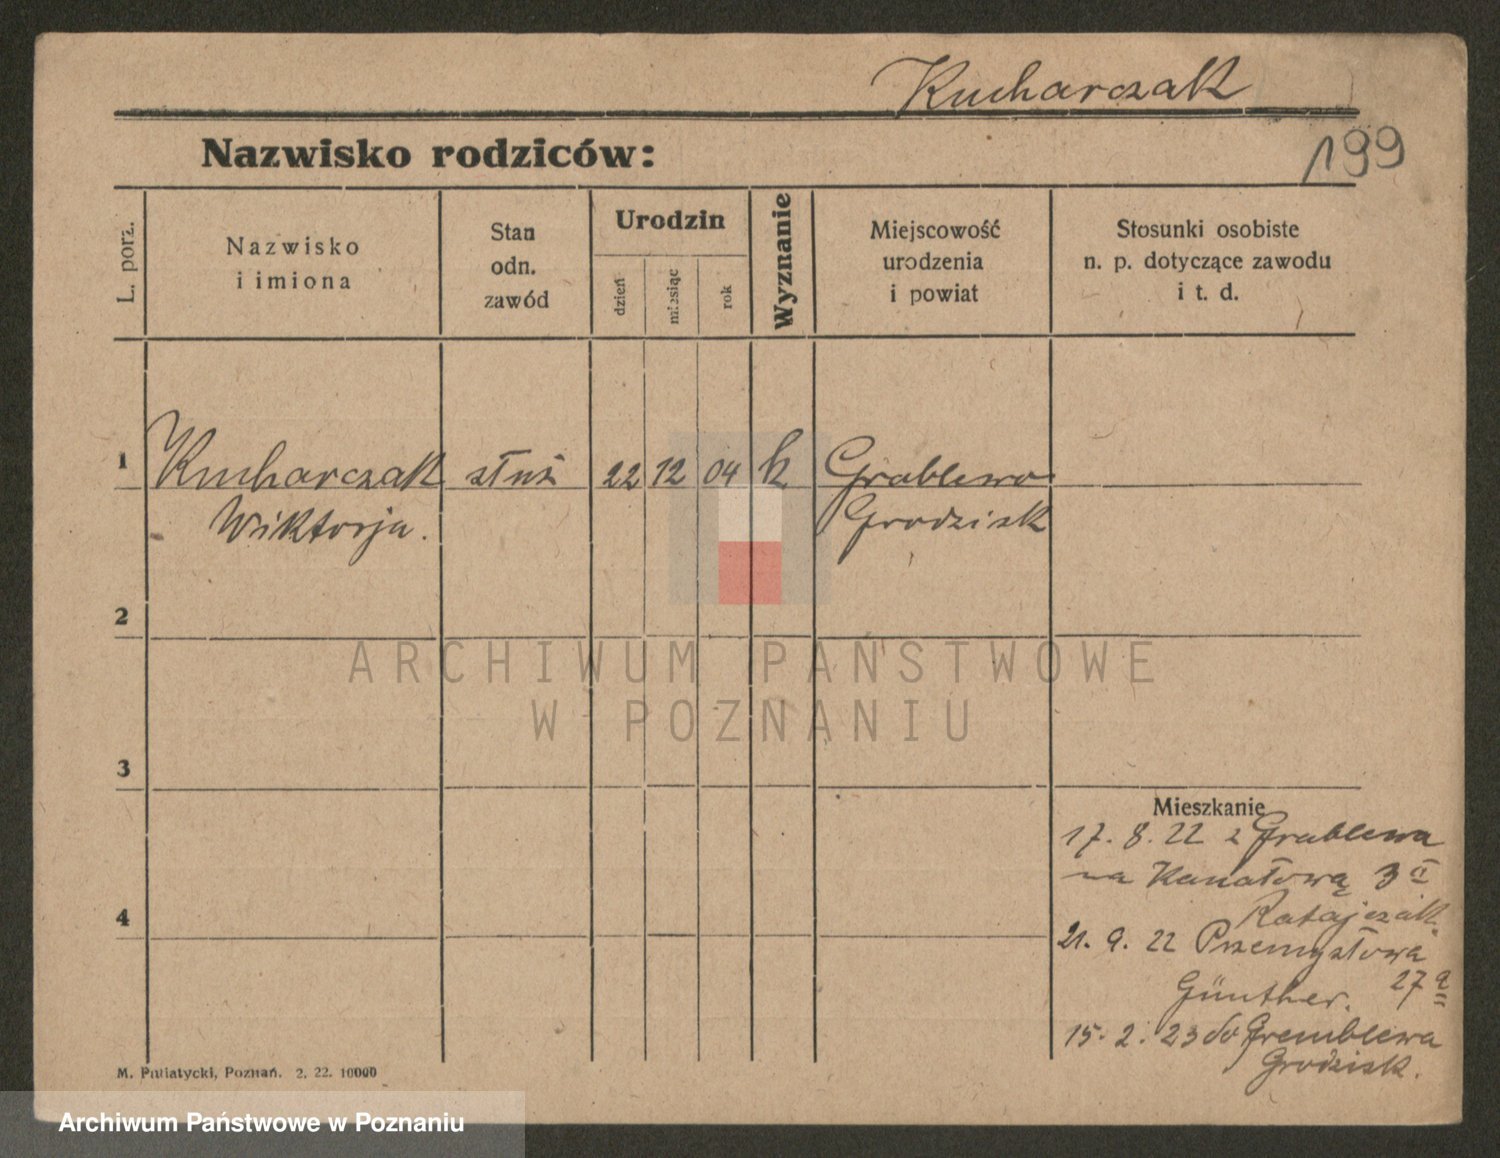 Kucharczak
199
Nazwisko rodziców:
L. porz.
Nazwisko
i imiona
Stan
odn.
zawód
Urodzin
dzień
miesiąc
rok
Wyznanie
Miejscowość
urodzenia
i powiat
Stosunki osobiste
n. p. dotyczące zawodu
i t. d.
1 Kucharczak służ 22 12 04 k Grablewo
Wiktorja. Grodzisk
2
3
4
ARCHIWUM PAŃSTWOWE
W POZNANIU
Mieszkanie
17. 8. 22 z Grablewa
na Kanałową 3
Ratajczak.
21. 9. 22 Przemysłowa
27 a
Günther.
15. 2. 23 do Gremblewa
Grodzisk.
M. Putiatycki, Poznań. 2. 22. 10000
Archiwum Państwowe w Poznaniu